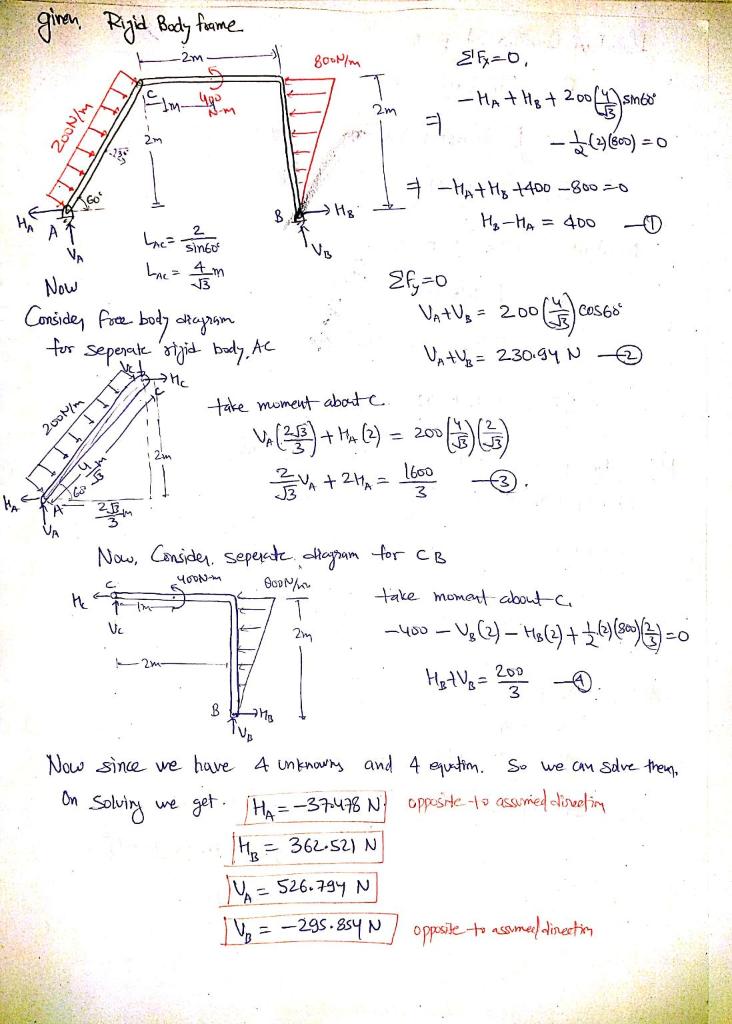 given, Rigid Body frame
2m
800N/m
200N/m
C
1m
400
N-m
2m
2m
60°
H_A
A
V_A
B
H_B
V_B
L_AC = 2/sin60°
L_AC = 4/√3 m
ΣFx=0,
⇒ -H_A + H_B + 200(4/√3)sin60°
- 1/2(2)(800) = 0
⇒ -H_A + H_B + 400 - 800 = 0
H_B - H_A = 400 —①
Σfy=0
V_A+V_B = 200(4/√3)cos60°
V_A+V_B = 230.94 N —②
Now
Consider free body diagram
for seperate rigid body, AC
V_C
H_C
C
200N/m
4/√3 m
2m
60°
H_A
A
2√3/3 m
V_A
take moment about C
V_A(2√3/3) + H_A(2) = 200(4/√3)(2/√3)
2/√3 V_A + 2H_A = 1600/3 —③.
Now, Consider, seperate diagram for CB
C
400N-m
800N/m
H_C
1m
V_C
2m
2m
B
H_B
V_B
take moment about C,
-400 - V_B(2) - H_B(2) + 1/2(2)(800)(2/3) = 0
H_B+V_B = 200/3 —④.
Now since we have 4 unknowns and 4 equation. So we can solve them,
On Solving we get. H_A = -37.478 N opposite to assumed direction
H_B = 362.521 N
V_A = 526.794 N
V_B = -295.854 N opposite to assumed direction